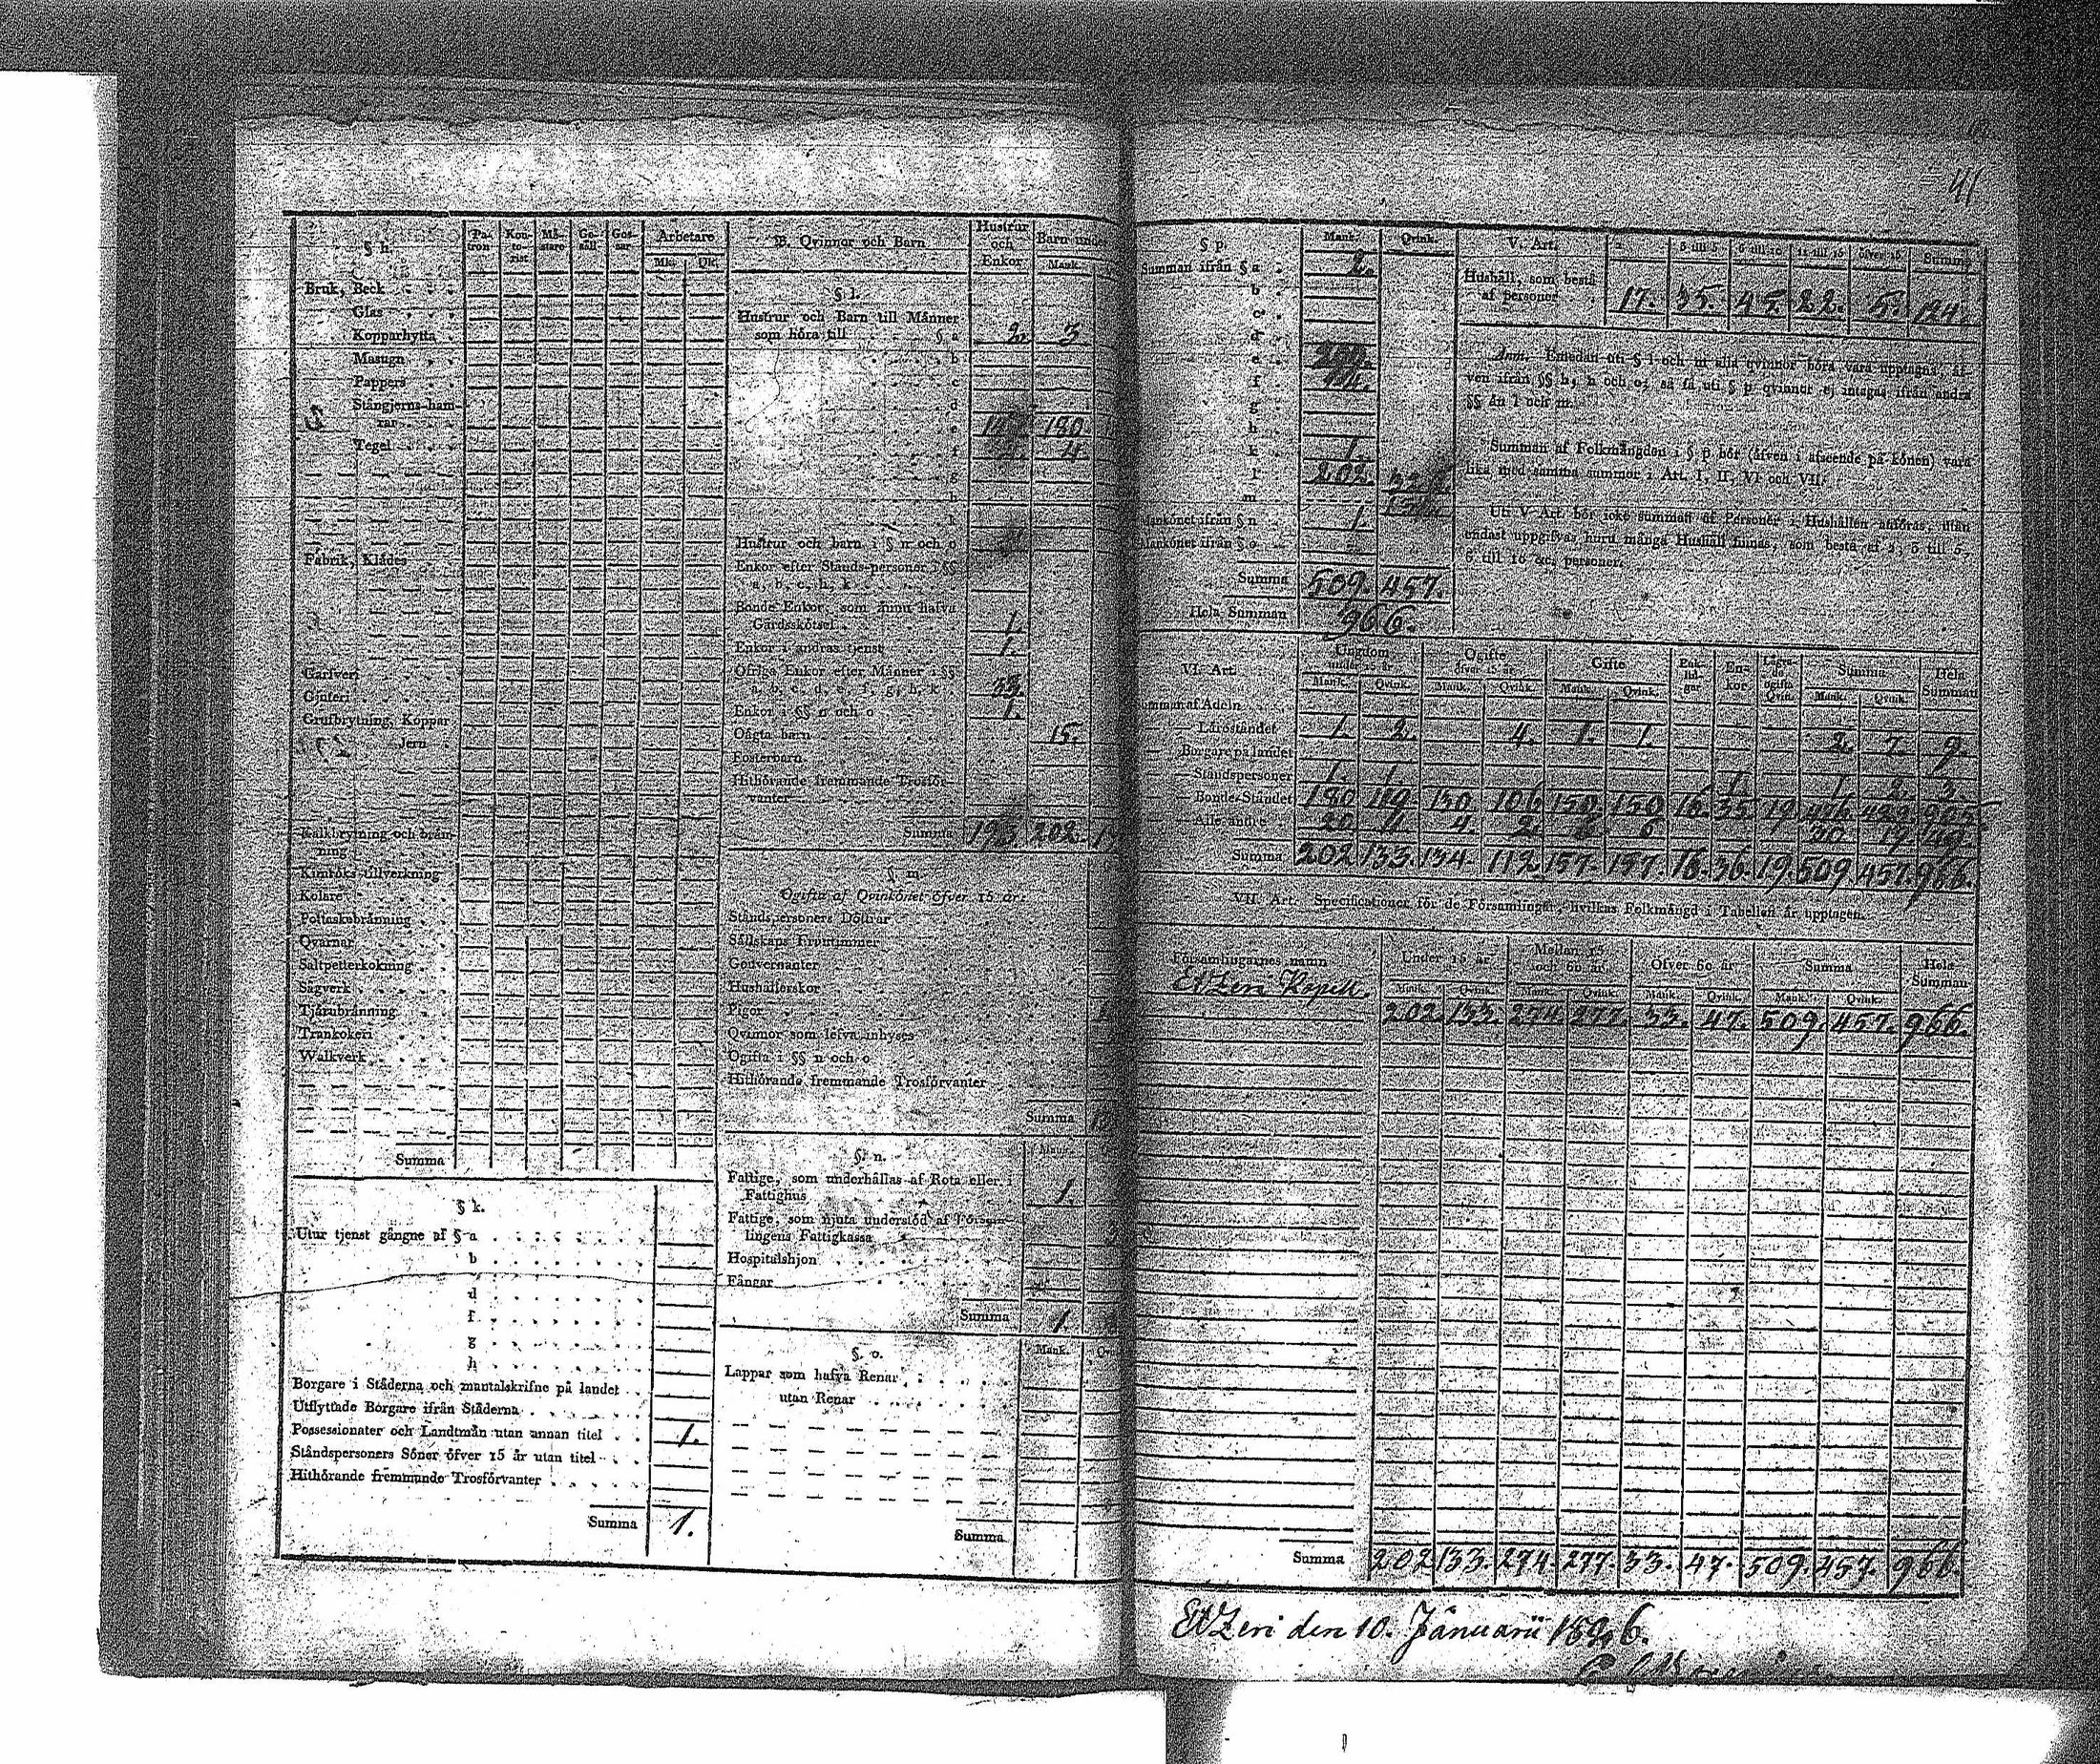 41
§ h.
Patron
Kontorist
Mästare
Gesäll
Gossar
Arbetare
Mk. Qk.
Bruk, Beck
Glas
Kopparhytta
Masugn
Pappers
Stångjerns-hamrar
Tegel
Fabrik, Klädes
Garfveri
Gjuteri
Grufbrytning, Koppar
Jern
Kalkbrytning och bränning
Kimröks-tillverkning
Kolare
Pottaskebränning
Qvarnar
Saltpetterkokning
Sågverk
Tjärubränning
Trankokeri
Walkverk
Summa
§ k.
Utur tjenst gångne af § a
b
d
f
g
h
Borgare i Städerna och mantalskrifne på landet
Utflyttade Borgare ifrån Städerna
Possessionater och Landtmän utan annan titel 1.
Ståndspersoners Söner öfver 15 år utan titel
Hithörande fremmande Trosförvanter
Summa 1.
B. Qvinnor och Barn
Hustrur och Enkor
Barn under
Mank.
§ l.
Hustrur och Barn till Männer
som höra till § a 2. 3
b
c
d
e 180
f 4
g
h
k
Hustrur och barn i § n och o
Enkor efter Stånds-personer i §§
a, b, c, h, k
Bonde Enkor, som ännu hafva
Gårdsskötsel 1.
Enkor i andras tjenst 1.
Öfriga Enkor efter Männer i §§
a, b, c, d, e, f, g, h, k 33.
Enkor i §§ n och o 1.
Oägta barn 15.
Fosterbarn
Hithörande fremmande Trosförvanter
Summa 193. 202.
§ m.
Ogifta af Qvinkönet öfver 15 år:
Ståndspersoners Döttrar
Sällskaps Fruntimmer
Gouvernanter
Hushållerskor
Pigor
Qvinnor som lefva inhyses
Ogifta i §§ n och o
Hithörande fremmande Trosförvanter
Summa
§. n.
Fattige, som underhållas af Rota eller i
Fattighus 1.
Fattige, som njuta understöd af Församlingens Fattigkassa
Hospitalshjon
Fångar
Summa 1
§. o.
Mank.
Lappar som hafva Renar
utan Renar
Summa
§ p.
Mank. Qvink.
Summan ifrån § a 2.
b
c
d
e
f
g
h
k 1.
l 202.
m
Mankönet ifrån § n 1.
Mankönet ifrån § o
Summa 509. 457.
Hela Summan 966.
V. Art.
2. 3 till 5 6 till 10. 11 till 15 öfver 15. Summa
Hushåll, som bestå
af personer 17. 35. 45. 22. 5. 124.
Anm. Emedan uti § l och m alla qvinnor böra vara upptagna, äfven ifrån §§ h, n och o; så få uti § p qvinnor ej intagas ifrån andra
§§ än l och m.
Summan af Folkmängden i §. p. bör (äfven i afseende på könen) vara
lika med samma summor i Art. I, II, VI och VII.
Uti V Art. bör icke summan af Personer i Hushållen anföras, utan
endast uppgifvas huru många Hushåll finnas, som bestå af 2, 3 till 5,
6 till 10 &c. personer.
VI. Art.
Ungdom under 15 år. Ogifte öfver 15 år. Gifte Enklingar Enkor Lägrade ogifta Qvin. Summa Hela Summan
Mank. Qvink. Mank. Qvink. Mank. Qvink. Mank. Qvink.
Summan af Adeln
Läroståndet 1. 2. 4. 1. 1. 2. 7 9.
Borgare på landet
Ståndspersoner 1. 1. 1 1 2. 3.
Bonde-Ståndet 180 119. 130. 106 150. 150 16. 35. 19 476. 429.
Alle andre 20 11. 4. 2. 6 6 30 19. 49.
Summa 202 133. 134. 112 157. 157. 16. 36. 19. 509. 457. 966.
VII. Art. Specificationer för de Församlingar, hvilkas Folkmängd i Tabellen är upptagen.
Församlingarnes namn Under 15 år Mellan 15 och 60 år. Öfver 60 år Summa Hela Summan
Mank. Qvink. Mank. Qvink. Mank. Qvink. Mank. Qvink.
Etzeri Kapell. 202 133. 274. 277. 33. 47. 509. 457. 966.
Summa 202 133. 274. 277. 33. 47. 509. 457. 966.
Etzeri den 10. Januarii 1826.